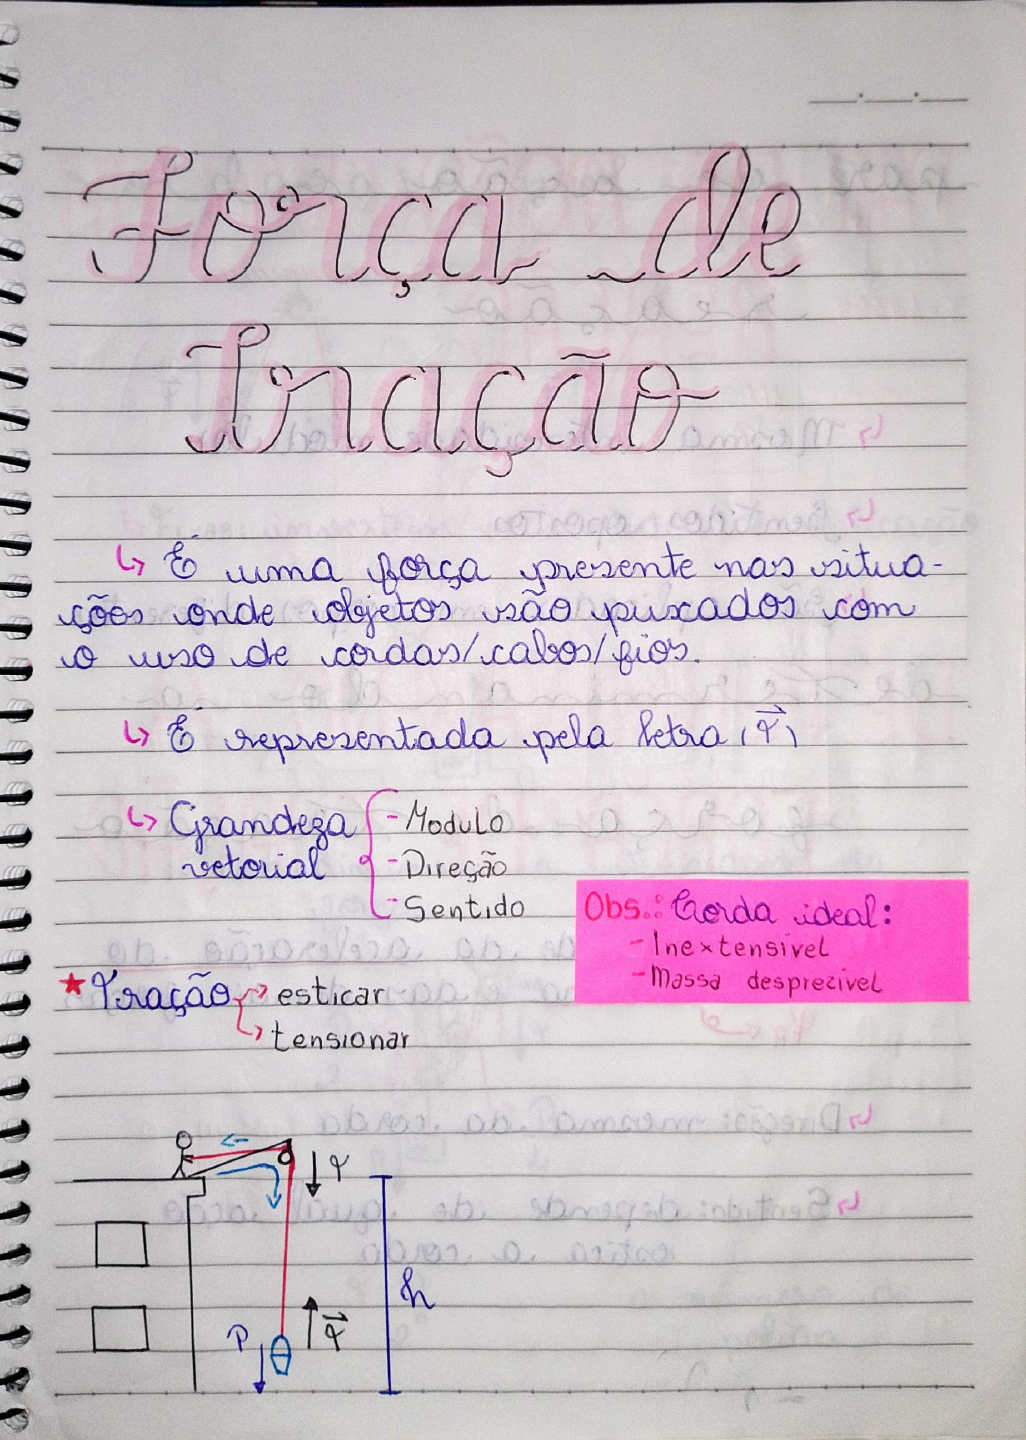 Força de
Tração
↳ É uma força presente nas situa-
ções onde objetos são puxados com
o uso de cordas/cabos/fios.
↳ É representada pela letra (T⃗)
↳ Grandeza
vetorial
- Modulo
- Direção
- Sentido
Obs.: Corda ideal:
- Inextensivel
- Massa desprezivel
★ Tração → esticar
↳ tensionar
T
h
T⃗
P